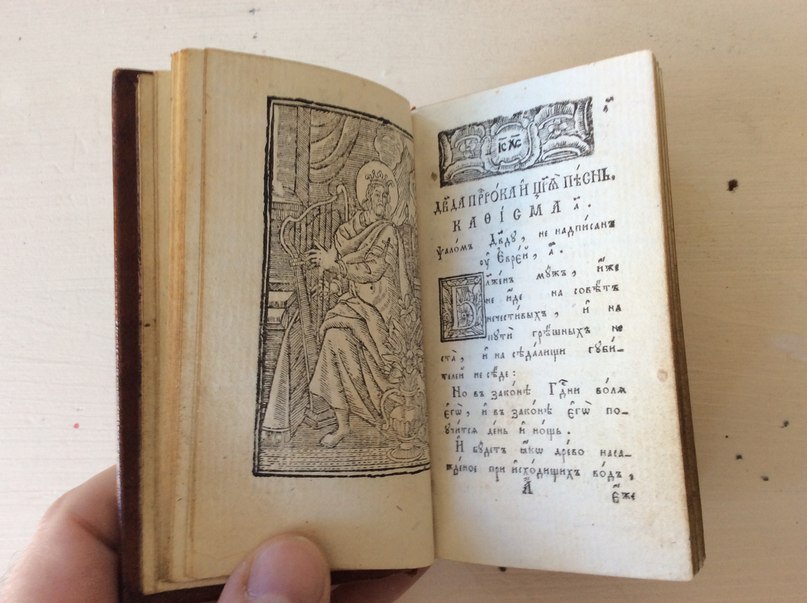 І҃С Х҃С
Дв҃да прⷪ҇ро́ка и҆ цр҃ѧ̀ пѣ́снь.
КАѲІ́СМА а҃.
Ѱало́мъ Дв҃ду, не надпи́санъ
ѹ҆ Є҆вре́й, а҃.
Бл҃же́нъ мꙋ́жъ, и҆́же
не и҆́де на совѣ́тъ
нечести́выхъ, и҆ на
пꙋтѝ грѣ́шныхъ не
ста̀, и҆ на сѣда́лищи гꙋби́-
телей не сѣ́де:
Но въ зако́нѣ Гдⷭ҇ни во́лѧ
є҆гѡ̀, и҆ въ зако́нѣ є҆гѡ̀ по-
ꙋчи́тсѧ де́нь и҆ но́щь.
И҆ бꙋ́детъ ꙗ҆́кѡ дре́во наса-
жде́ное при и҆схо́дищихъ во́дъ,
А҃ є҆́же